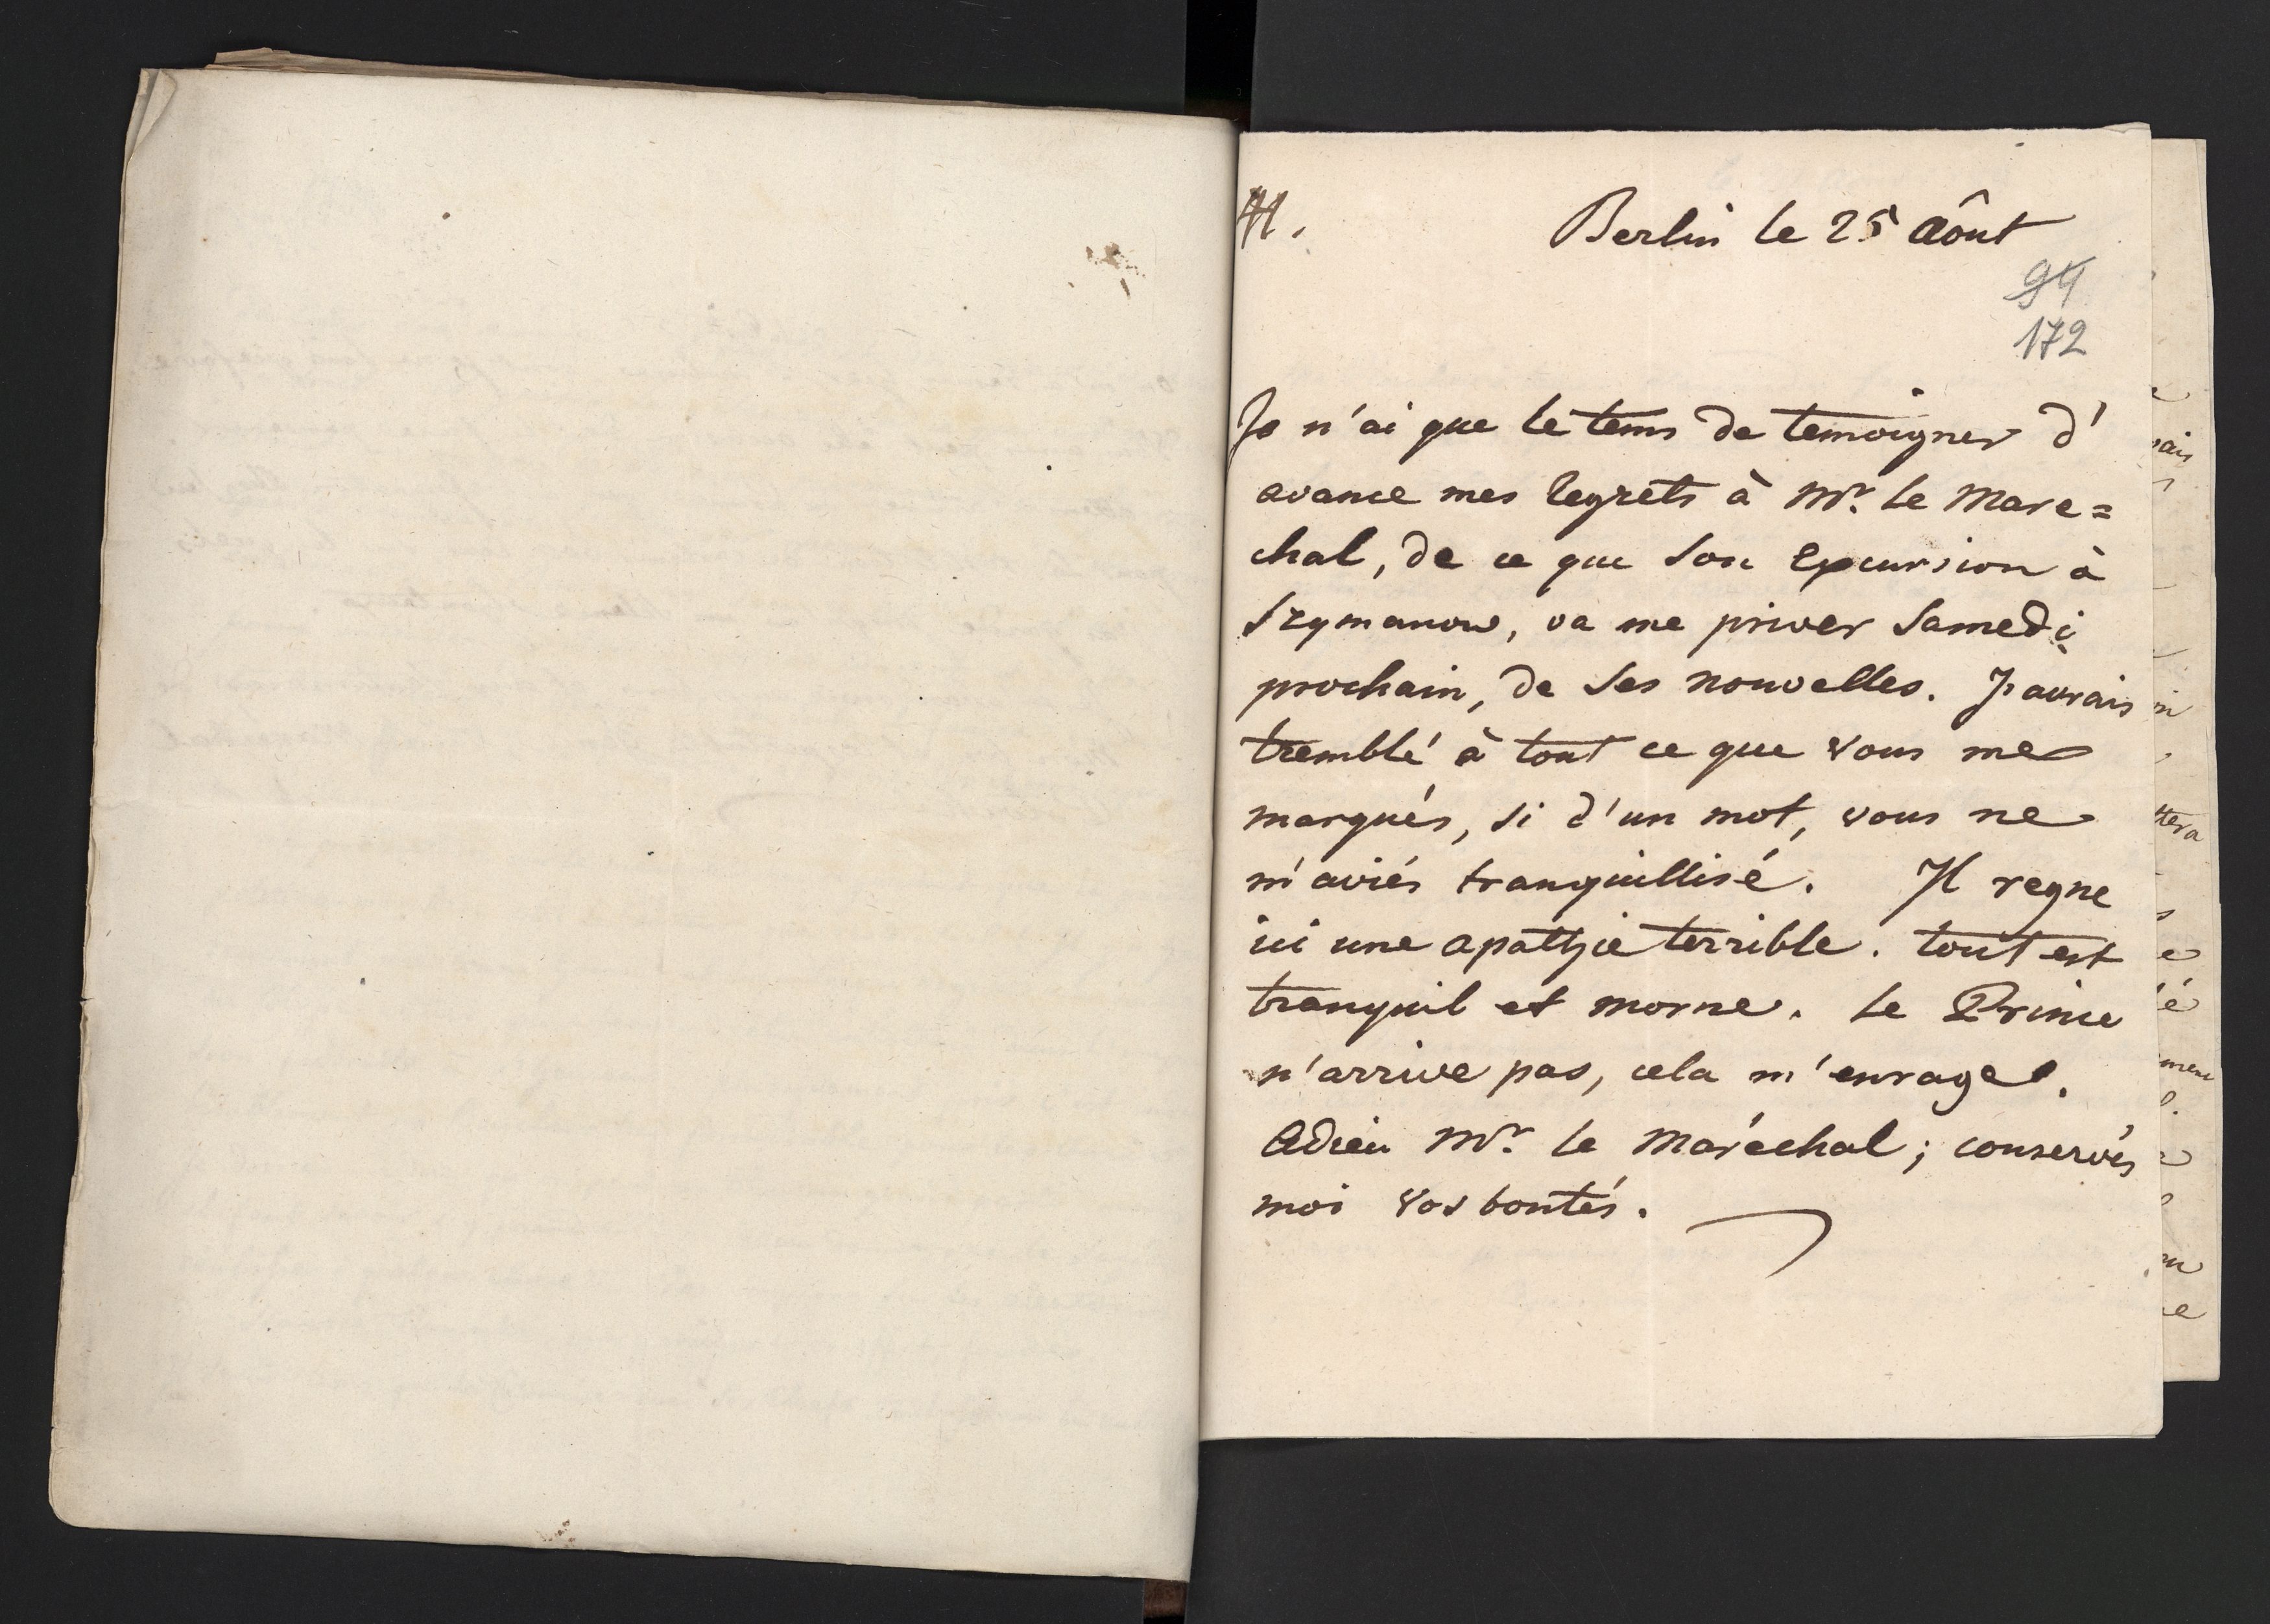 Berlin le 25 Aôut
94
172
Je n'ai que le tems de temoigner d'
avance mes regrets à Mr. le Mare=
chal, de ce que son excursion à
Szymanow, va me priver Samedi
prochain, de ses nouvelles. J'aurais
tremblé à tout ce que vous me
marqués, si d'un mot, vous ne
m'aviés tranquillisé. Il regne
ici une apathie terrible. tout est
tranquil et morne. le Prince
n'arrive pas, cela m'enrage.
Adieu Mr. le Maréchal; conservés
moi vos bontés.